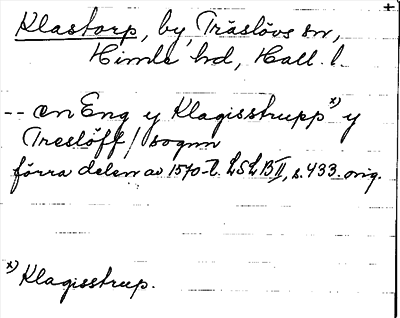 Klastorp, by, Träslövs sn,
Himle hd, Hall. l.
-- en Eng y Klagisstrupp x) y
Treslöff / sognn
förra delen av 1570-t. LSLBII, s. 433. orig.
x) Klagisstrup.